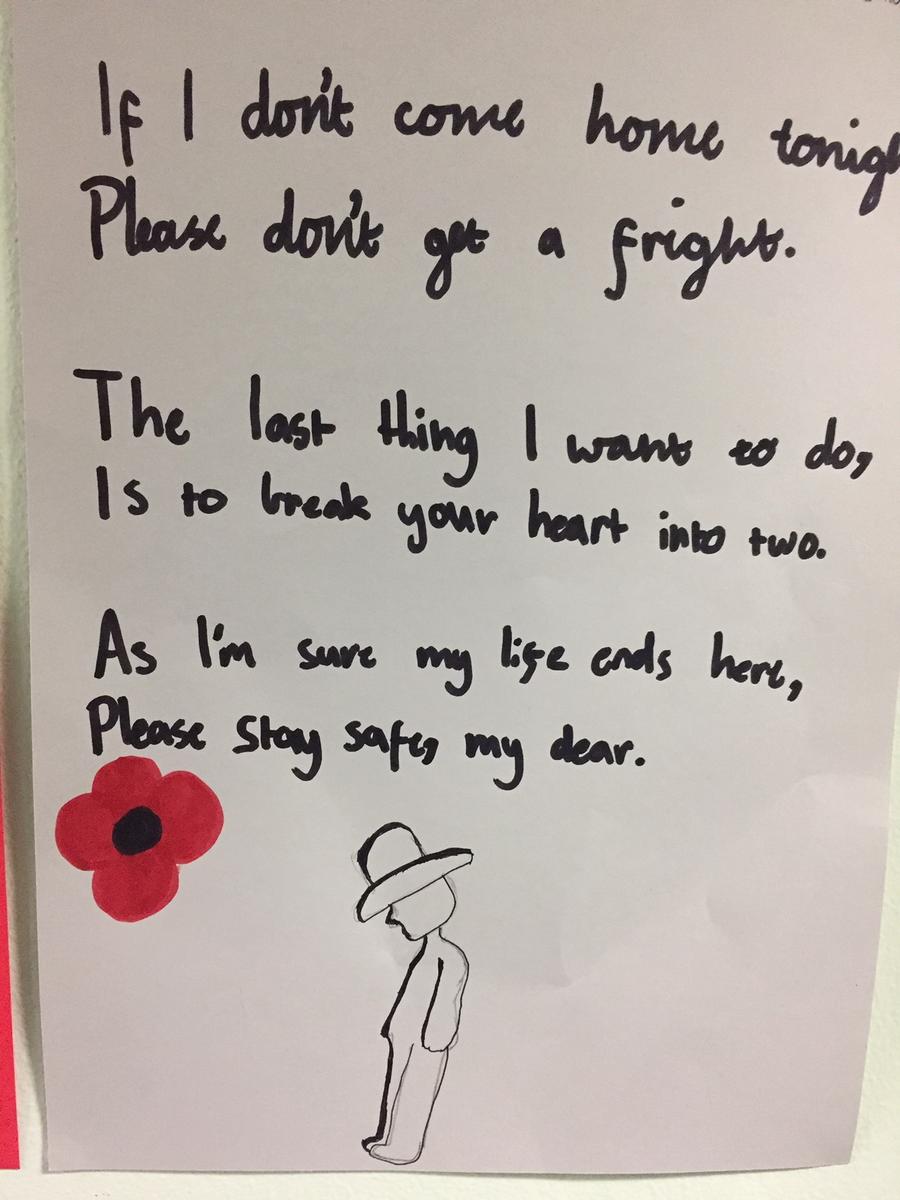 If I don't come home tonigh
Please don't get a fright.
The last thing I want to do,
Is to break your heart into two.
As I'm sure my life ends here,
Please stay safe, my dear.